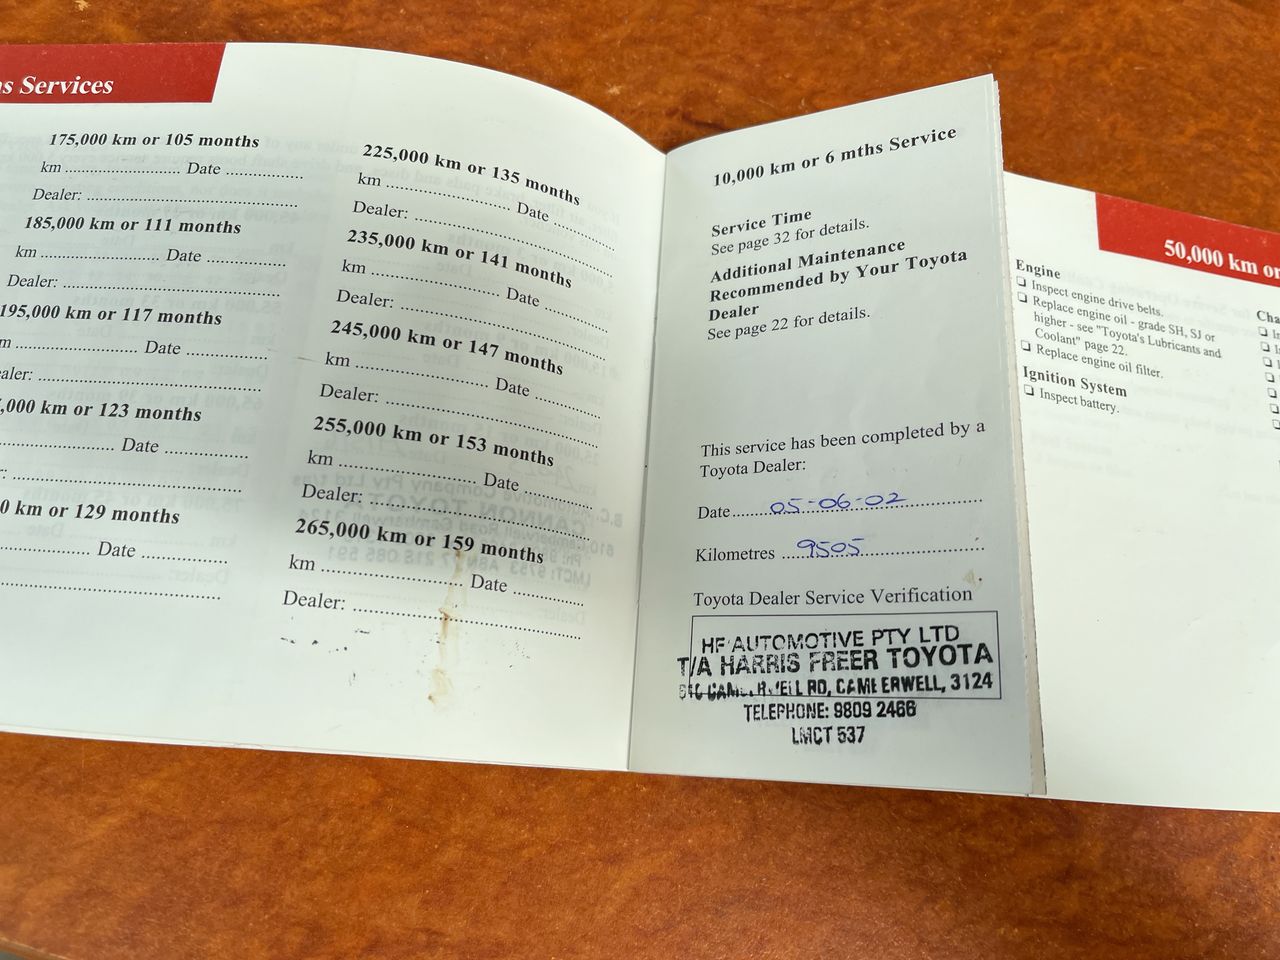 Services
175,000 km or 105 months
km ............................. Date ....................
Dealer: .....................................................
185,000 km or 111 months
km .............................. Date ....................
Dealer: .....................................................
195,000 km or 117 months
Date ....................
000 km or 123 months
Date ....................
0 km or 129 months
Date ....................
225,000 km or 135 months
km ............................... Date ....................
Dealer: .....................................................
235,000 km or 141 months
km ............................... Date ....................
Dealer: .....................................................
245,000 km or 147 months
km ............................... Date ....................
Dealer: .....................................................
255,000 km or 153 months
km ............................... Date ....................
Dealer: .....................................................
265,000 km or 159 months
km ............................... Date ....................
Dealer: .....................................................
10,000 km or 6 mths Service
Service Time
See page 32 for details.
Additional Maintenance
Recommended by Your Toyota
Dealer
See page 22 for details.
This service has been completed by a
Toyota Dealer:
Date 05-06-02
Kilometres 9505
Toyota Dealer Service Verification
HF AUTOMOTIVE PTY LTD
T/A HARRIS FREER TOYOTA
RD, CAMBERWELL, 3124
TELEPHONE: 9809 2466
LMCT 537
50,000 km or
Engine
❏ Inspect engine drive belts.
❏ Replace engine oil - grade SH, SJ or
higher - see "Toyota's Lubricants and
Coolant" page 22.
❏ Replace engine oil filter.
Ignition System
❏ Inspect battery.